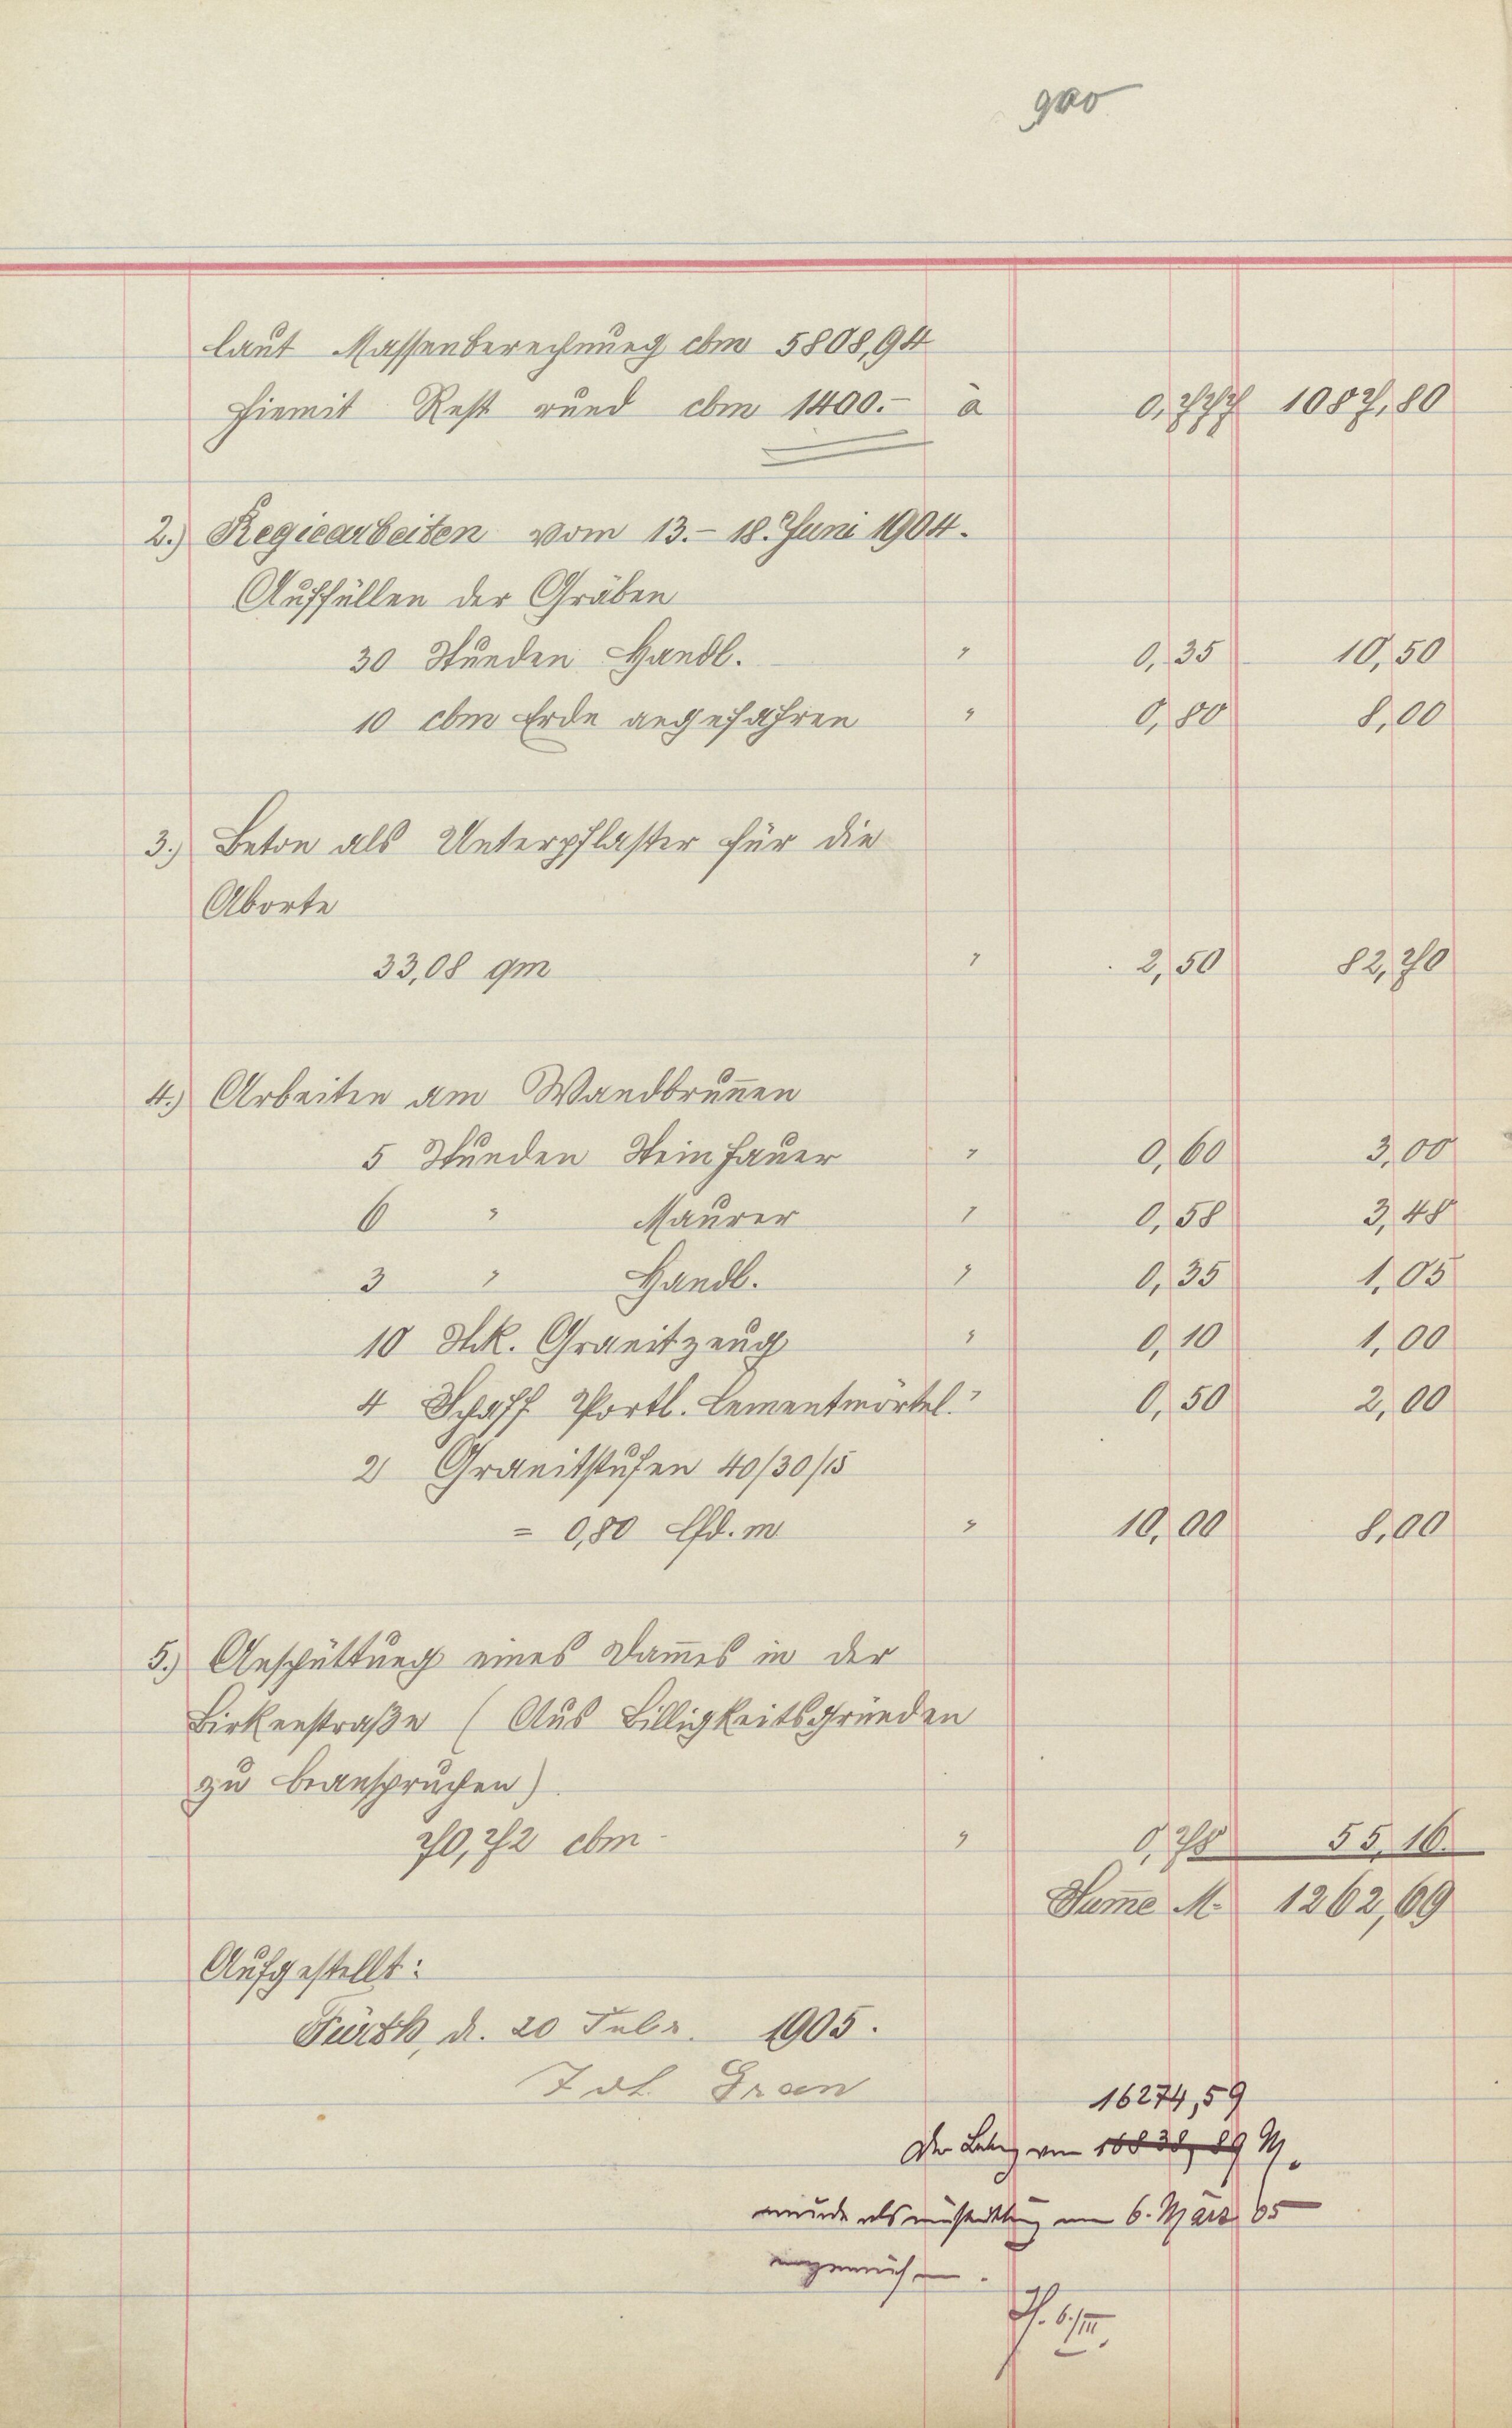 laut Massenberechnung cbm 5808,94
hiemit Rest rund cbm 1400.- à 0,777 1087,80
2.) Regiearbeiten vom 13.- 18. Juni 1904.
Auffüllen der Gräben
30 Stunden Handl. " 0,35 10,50
10 cbm Erde angefahren " 0,80 8,00
3.) Beton als Unterpflaster für die
Aborte
33,08 qm " 2,50 82,70
4.) Arbeiten am Wandbrun̄en
5 Stunden Steinhauer " 0,60 3,00
6 " Maurer " 0,58 3,48
3 " Handl. " 0,35 1,05
10 Stk. Granitzeug " 0,10 1,00
4 Schaff Portl. Cementmörtel. " 0,50 2,00
2 Granitstufen 40/30/15
= 0,80 lfd. m " 10,00 8,00
5.) Anschüttung eines Dam̄es in der
Birkenstraße (Aus Billigkeitsgründen
zu beanspruchen)
70,72 cbm " 0,78 55,16.
Sum̄e M. 1262,69
Aufgestellt:
Fürth, d. 20 Febr. 1905.
16274,59
Der Betrag von M.
wurde als am 6. März 05
angewiesen.